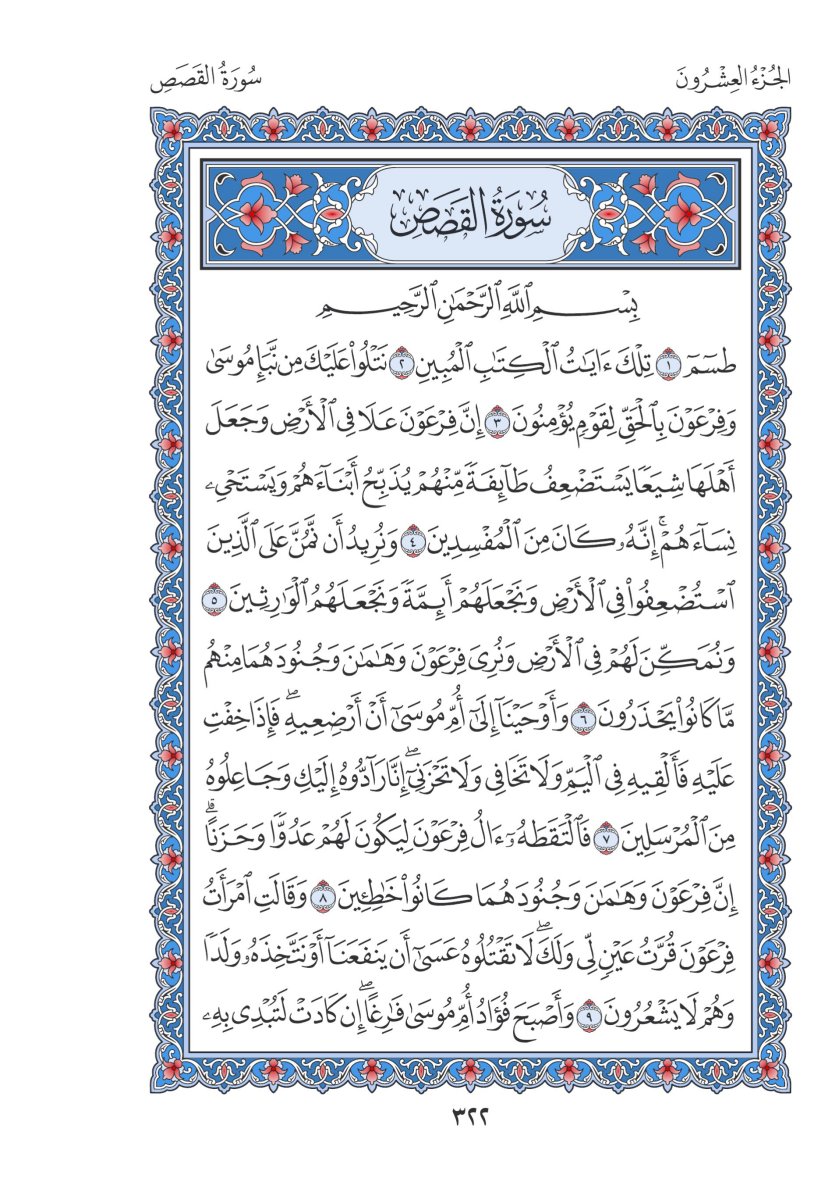 الجُزْءُ العِشْرُونَ
سُورَةُ القَصَصِ
سُورَةُ القَصَصِ
بِسْمِ ٱللَّهِ ٱلرَّحْمَٰنِ ٱلرَّحِيمِ
طسٓمٓ ١ تِلْكَ ءَايَٰتُ ٱلْكِتَٰبِ ٱلْمُبِينِ ٢ نَتْلُوا۟ عَلَيْكَ مِن نَّبَإِ مُوسَىٰ
وَفِرْعَوْنَ بِٱلْحَقِّ لِقَوْمٍ يُؤْمِنُونَ ٣ إِنَّ فِرْعَوْنَ عَلَا فِى ٱلْأَرْضِ وَجَعَلَ
أَهْلَهَا شِيَعًا يَسْتَضْعِفُ طَآئِفَةً مِّنْهُمْ يُذَبِّحُ أَبْنَآءَهُمْ وَيَسْتَحْىِۦ
نِسَآءَهُمْ ۚ إِنَّهُۥ كَانَ مِنَ ٱلْمُفْسِدِينَ ٤ وَنُرِيدُ أَن نَّمُنَّ عَلَى ٱلَّذِينَ
ٱسْتُضْعِفُوا۟ فِى ٱلْأَرْضِ وَنَجْعَلَهُمْ أَئِمَّةً وَنَجْعَلَهُمُ ٱلْوَٰرِثِينَ ٥
وَنُمَكِّنَ لَهُمْ فِى ٱلْأَرْضِ وَنُرِىَ فِرْعَوْنَ وَهَٰمَٰنَ وَجُنُودَهُمَا مِنْهُم
مَّا كَانُوا۟ يَحْذَرُونَ ٦ وَأَوْحَيْنَآ إِلَىٰٓ أُمِّ مُوسَىٰٓ أَنْ أَرْضِعِيهِ ۖ فَإِذَا خِفْتِ
عَلَيْهِ فَأَلْقِيهِ فِى ٱلْيَمِّ وَلَا تَخَافِى وَلَا تَحْزَنِىٓ ۖ إِنَّا رَآدُّوهُ إِلَيْكِ وَجَاعِلُوهُ
مِنَ ٱلْمُرْسَلِينَ ٧ فَٱلْتَقَطَهُۥٓ ءَالُ فِرْعَوْنَ لِيَكُونَ لَهُمْ عَدُوًّا وَحَزَنًا ۗ
إِنَّ فِرْعَوْنَ وَهَٰمَٰنَ وَجُنُودَهُمَا كَانُوا۟ خَٰطِـِٔينَ ٨ وَقَالَتِ ٱمْرَأَتُ
فِرْعَوْنَ قُرَّتُ عَيْنٍ لِّى وَلَكَ ۖ لَا تَقْتُلُوهُ عَسَىٰٓ أَن يَنفَعَنَآ أَوْ نَتَّخِذَهُۥ وَلَدًا
وَهُمْ لَا يَشْعُرُونَ ٩ وَأَصْبَحَ فُؤَادُ أُمِّ مُوسَىٰ فَٰرِغًا ۖ إِن كَادَتْ لَتُبْدِى بِهِۦ
٣٢٢